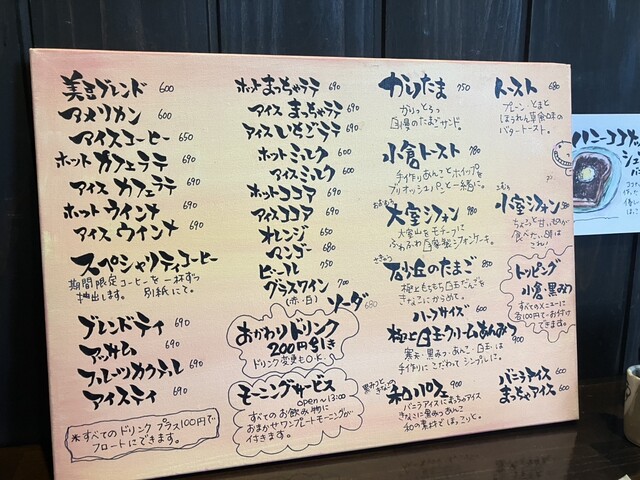 美豆ブレンド 600
アメリカン 600
アイスコーヒー 650
ホットカフェラテ 690
アイスカフェラテ 690
ホットウインナ 690
アイスウインナ 690
スペシャリティコーヒー
期間限定コーヒーを一杯ずつ
抽出します。 別紙にて。
ブレンドティ 690
アッサム 690
フルーツカクテル 690
アイスティ 690
※すべてのドリンク プラス100円で
フロートにできます。
ホットまっちゃラテ 690
アイスまっちゃラテ 690
アイスいちごラテ 690
ホットミルク 600
アイスミルク 600
ホットココア 690
アイスココア 690
オレンジ 650
マンゴー 680
ビール 750
グラスワイン 700
(赤・白)
ソーダ 680
おかわりドリンク
200円引き
ドリンク変更もO.K.
モーニングサービス
open~13:00
すべてのお飲み物に
おまかせワンプレートモーニングが
付きます。
かりたま 750
かりっとろっ
自慢のたまごサンド。
小倉トースト 780
手作りあんことホイップを
ブリオッシュパンと一緒に。
おおむろ
大室シフォン 980
大室山をモチーフに
ふわふわ自家製シフォンケーキ。
さきゅう
砂丘のたまご 850
極上もちもち白玉だんごを
きなこにからめて。
ハーフサイズ 600
極上白玉クリームあんみつ 900
寒天・黒みつ・あんこ・白玉は
手作りにこだわてシンプルに。
黒みつきなこ
和パフェ 900
バニラアイスにまっちゃアイス
きなこに黒みつあんこ
和の素材でほっこりと。
トースト 680
プレーン・とまと
ほうれん草食味の
バタートースト。
こむろ
小室シフォン
ちょっと甘いものが
食べたい時は
これ!
トッピング
小倉・黒みつ
すべてのメニューに
各100円でお付け
できます。
バニラアイス 600
まっちゃアイス 600
ハニーココナッツ